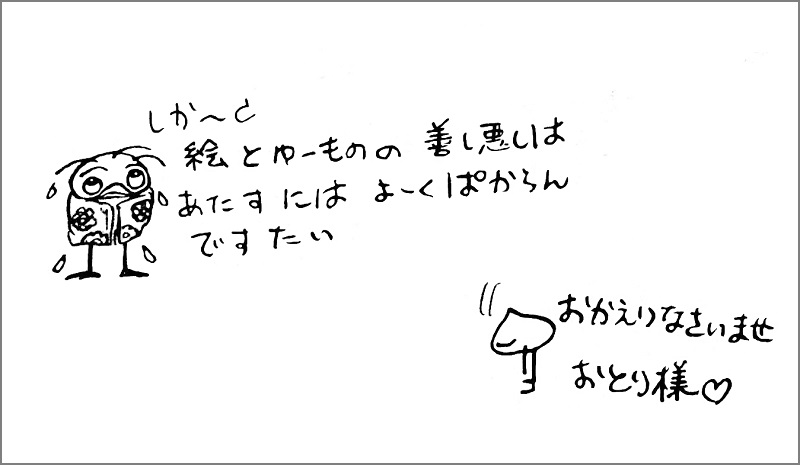 しか〜と
絵とゆーものの 善し悪しは
あたすには よーくぱからん
ですたい
おかえりなさいませ
おとり様♡